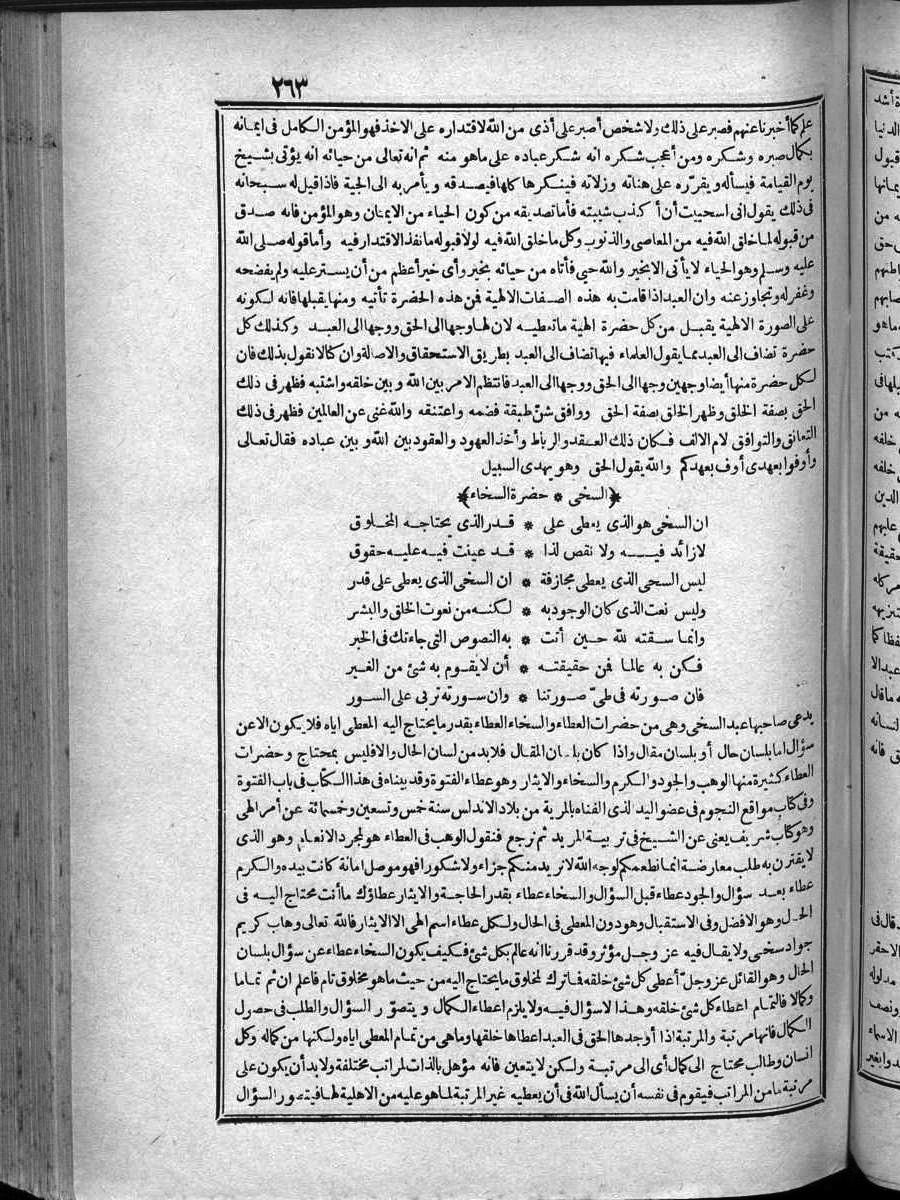 ٢٦٣
علم كما أخبرناعنهم فصبر على ذلك ولا شخص أصبر على أذى من الله لاقتداره على الاخذ فهو المؤمن الكامل فى ايمانه
بكمال صبره وشكره ومن أعجب شكره انه شكر عباده على ماهو منه ثم انه تعالى من حيائه انه يؤتى بشيخ
يوم القيامة فيسأله ويقرّره على هناته وزلاته فينكرها كلها فيصدقه ويأمر به الى الجنة فاذا قيل له سبحانه
فى ذلك يقول انى استحييت أن أكذب شيبته فأما تصديقه من كون الحياء من الايمان وهو المؤمن فانه صدق
من قبوله لما خلق الله فيه من المعاصى والذنوب وكل ما خلق الله فيه لولا قبوله ما نفذ الاقتدار فيه وأما قوله صلى الله
عليه وسلم وهو الحياء لا يأتى الا بخير والله حيى فأتاه من حيائه بخير وأى خير أعظم من أن يستر عليه ولم يفضحه
وغفر له وتجاوز عنه وان العبد اذا قامت به هذه الصفات الالهية فمن هذه الحضرة تأتيه ومنها يقبلها فانه لكونه
على الصورة الالهية يقبل من كل حضرة الهية ما تعطيه لان لها وجها الى الحق ووجها الى العبد وكذلك كل
حضرة تضاف الى العبد مما يقول العلماء فيها تضاف الى العبد بطريق الاستحقاق والاصالة وان كنا لا نقول بذلك فان
لكل حضرة منها أيضا وجهين وجها الى الحق ووجها الى العبد فانتظم الامر بين الله وبين خلقه واشتبه فظهر فى ذلك
الحق بصفة الخلق وظهر الخلق بصفة الحق ووافق شنّ طبقة فضمه واعتنقه والله غنى عن العالمين فظهر فى ذلك
التعانق والتوافق لام الالف فكان ذلك العقد والرباط وأخذ العهود والعقود بين الله وبين عباده فقال تعالى
وأوفوا بعهدى أوف بعهدكم والله يقول الحق وهو يهدى السبيل
﴿السخى * حضرة السخاء﴾
ان السخى هو الذى يعطى على * قدر الذى يحتاجه المخلوق
لا زائد فيه ولا نقص لذا * قد عينت فيه عليه حقوق
ليس السخى الذى يعطى مجازفة * ان السخى الذى يعطى على قدر
وليس نعت الذى كان الوجود به * لكنه من نعوت الخلق والبشر
وانما سقته لله حين أتت * به النصوص التى جاءتك فى الخبر
فكن به عالما فمن حقيقته * أن لا يقوم به شئ من الغير
فان صورته فى طىّ صورتنا * وان سورته تربى على السور
يدعى صاحبها عبد السخى وهى من حضرات العطاء والسخاء العطاء بقدر ما يحتاج اليه المعطى اياه فلا يكون الا عن
سؤال اما بلسان حال أو بلسان مقال واذا كان بلسان المقال فلابد من لسان الحال والا فليس بمحتاج وحضرات
العطاء كثيرة منها الوهب والجود والكرم والسخاء والايثار وهو عطاء الفتوة وقد بيناه فى هذا الكتاب فى باب الفتوة
وفى كتاب مواقع النجوم فى عضو اليد الذى الفناه بالمرية من بلاد الاندلس سنة خمس وتسعين وخمسمائة عن أمر الهى
وهو كتاب شريف يغنى عن الشيخ فى تربية المريد ثم نرجع فنقول الوهب فى العطاء هو لمجرد الانعام وهو الذى
لا يقترن به طلب معارضة انما نطعمكم لوجه الله لا نريد منكم جزاء ولا شكورا فهو موصل امانة كانت بيده والكرم
عطاء بعد سؤال والجود عطاء قبل السؤال والسخاء عطاء بقدر الحاجة والايثار عطاؤك ما أنت محتاج اليه فى
الحال وهو الافضل وفى الاستقبال وهو دون المعطى فى الحال ولكل عطاء اسم الهى الا الايثار فالله تعالى وهاب كريم
جواد سخى ولا يقال فيه عز وجل مؤثر وقد قررنا انه عالم بكل شئ فكيف يكون السخاء عطاء عن سؤال بلسان
الحال وهو القائل عز وجل أعطى كل شئ خلقه فما ترك لمخلوق ما يحتاج اليه من حيث ما هو مخلوق تام فاعلم ان ثم تماما
وكمالا فالتمام اعطاء كل شئ خلقه وهذا لا سؤال فيه ولا يلزم اعطاء الكمال ويتصوّر السؤال والطلب فى حصول
الكمال فانها مرتبة والمرتبة اذا أوجدها الحق فى العبد اعطاها خلقها وما هى من تمام المعطى اياه ولكنها من كماله وكل
انسان وطالب محتاج الى كمال أى الى مرتبة ولكن لا يتعين فانه مؤهل بالذات لمراتب مختلفة ولا بد أن يكون على
مرتبة ما من المراتب فيقوم فى نفسه أن يسأل الله فى أن يعطيه غير المرتبة لما هو عليه من الاهلية لها فيتصور السؤال